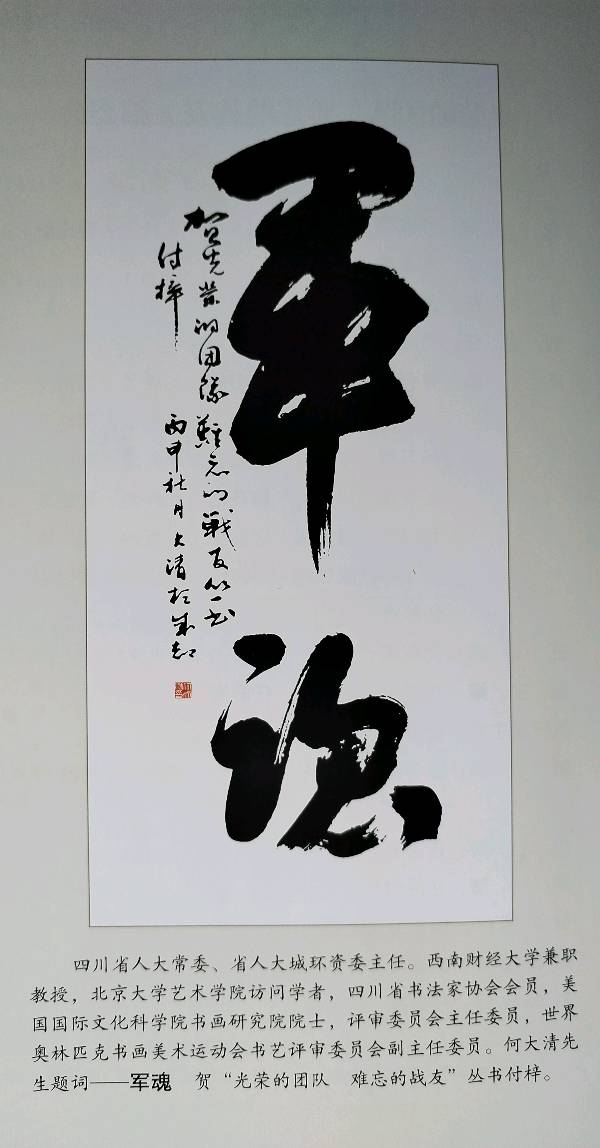 軍魂
賀光榮的团隊難忘的戰友丛书
付梓 丙申社月大清於成都
四川省人大常委、省人大城环资委主任。西南财经大学兼职
教授，北京大学艺术学院访问学者，四川省书法家协会会员，美
国国际文化科学院书画研究院院士，评审委员会主任委员，世界
奥林匹克书画美术运动会书艺评审委员会副主任委员。何大清先
生题词——军魂 贺“光荣的团队 难忘的战友”丛书付梓。